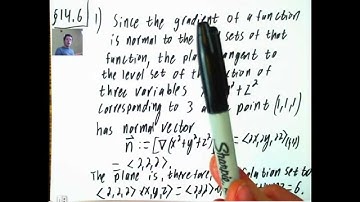 §14.6 1) Since the gradient of a function
is normal to the sets of that
function, the plane tangent to
the level set of the function of
three variables
corresponding to 3 at the point (1,1,1)
has normal vector
= <2,2,2>.
The plane is, therefore, solution set to
<2,2,2>·<x,y,z> = = 6.
Sharpie